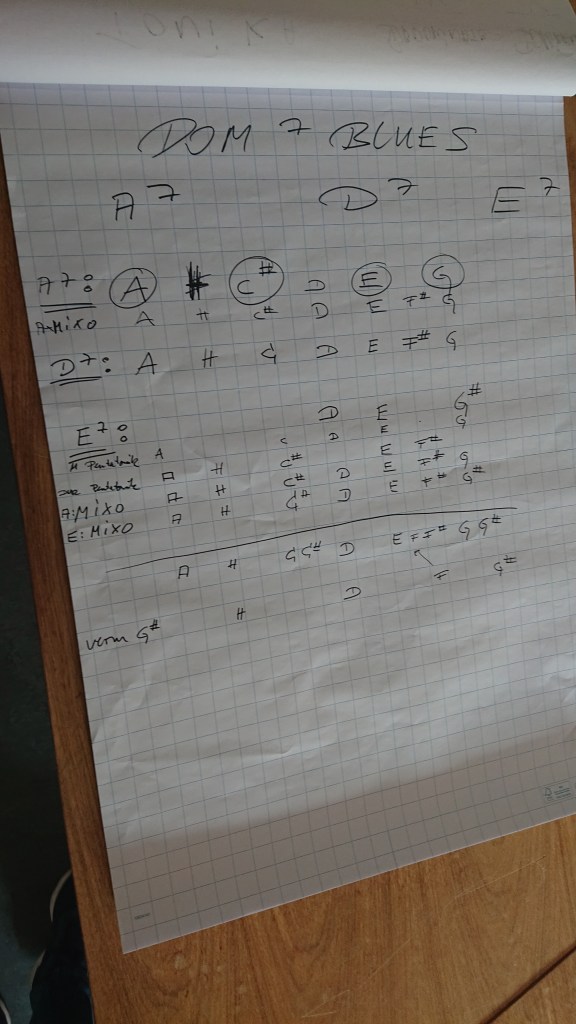 DOM 7 BLUES
A7 D7 E7
A7: A C# D E G
A:MIXO A H C# D E F# G
D7: A H C D E F# G
E7: D E G#
Pentatonik A C D E G
Pentatonik A H C# E F#
A:MIXO A H C# D E F# G
E:MIXO A H C# D E F# G#
A H C C# D E F F# G G#
verm G# H D F G#